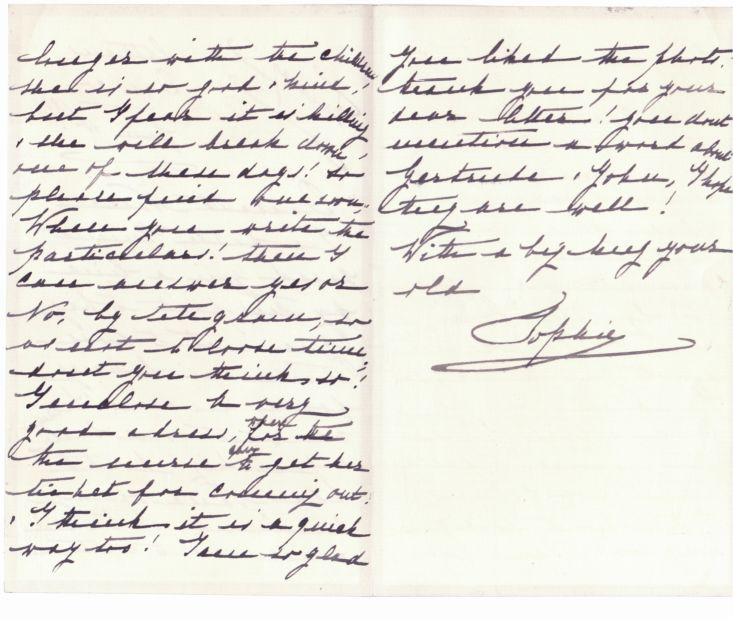 longer with the children
she is so good & kind,
but I fear it is killing
& she will break down,
one of these days! So
please find one soon,
When you write the
particulars! then I
can answer yes or
No, by telegram, so
as not to loose time,
dont you think so!
I enclose a very
good adress, for the
the nurse to get her
ticket for coming out!
& I think it is a quick
way too! I am so glad
you liked the photo.
thank you for your
dear letter! you dont
mention a word about
Gertrude & John, I hope
they are well!
With a big hug your
old
Sophie